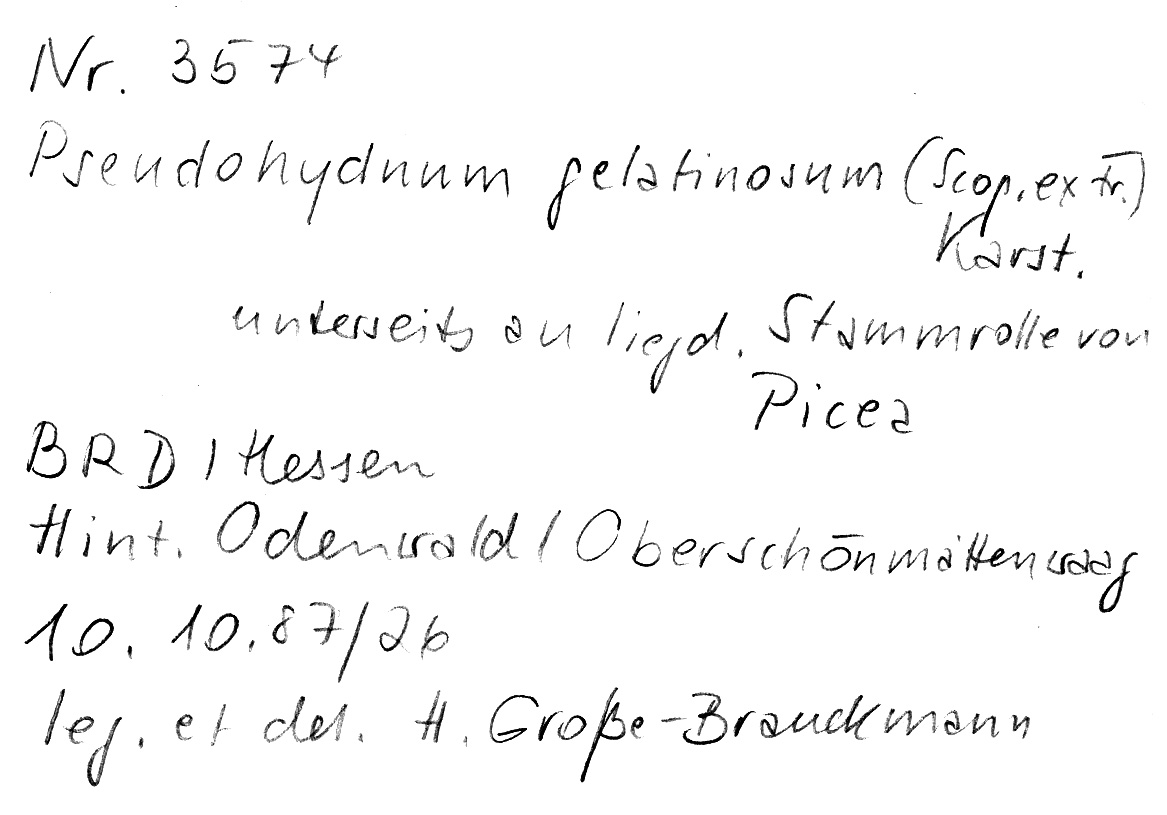 Nr. 3574
Pseudohydnum gelatinosum (Scop. ex Fr.)
Karst.
unterseits an liegd. Stammrolle von
Picea
BRD / Hessen
Hint. Odenwald / Oberschönmattenwaag
10. 10. 87/26
leg. et det. H. Große-Brauckmann